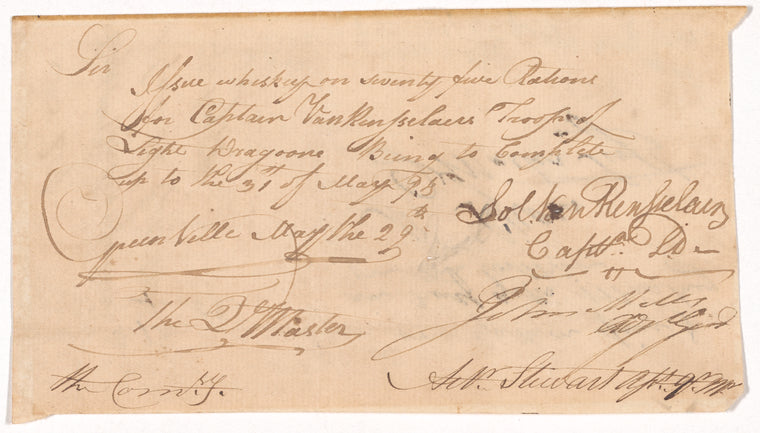 Sir
Issue whiskey on seventy five Rations
for Captain VanRensselaers Troop of
Light Dragoons Being to Complete
up to the 31st of May 95
Greenville May the 29th
Sol VanRensselaer
Captn. LD
The Qr Master
John Mills
the Comsy.
Stewart